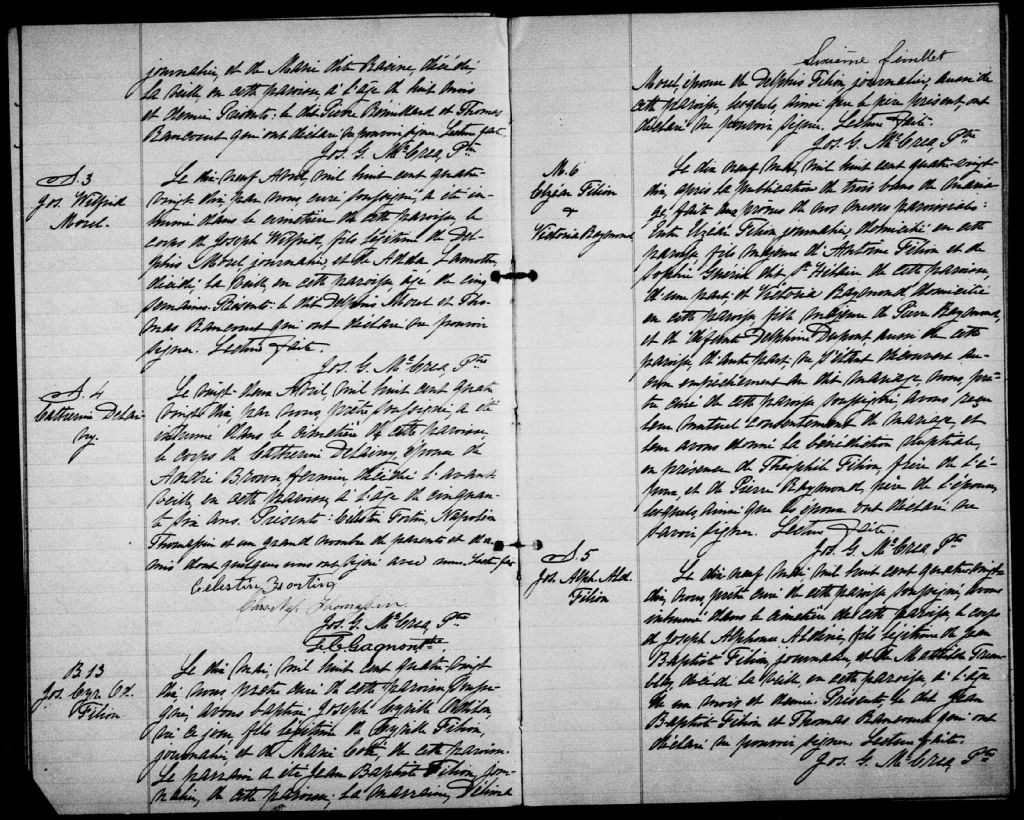 journalier, et de Marie dite Racine, décédé,
la veille, en cette paroisse à l'âge de huit mois
et demie. Présents: le dit Pierre Robinhard et Thomas
Bancourt qui ont déclaré ne pouvoir signer. Lecture faite.
Jos. G. McCrea, Ptre
S. 3
Jos. Wilfrid
Morel.
Le dix neuf Avril, mil huit cent quatre
vingt dix, par nous, curé soussigné, a été in-
humé dans le cimetière de cette paroisse, le
corps de Joseph Wilfrid, fils légitime de Del-
phis Morel journalier, et de Adèle Lamothe,
décédé, la veille, en cette paroisse âgé de cinq
semaines. Présents: le dit Delphis Morel et Tho-
mas Bancourt qui ont déclaré ne pouvoir
signer. Lecture faite.
Jos. G. McCrea, Ptre
S. 4
Catherine Delai-
ny.
Le vingt deux Avril, mil huit cent quatre
vingt dix par nous, prêtre soussigné a été
inhumé dans le cimetière de cette paroisse
le corps de Catherine Delainy, épouse de
André Brown fermier, décédée l'avant
veille, en cette paroisse, à l'âge de cinquan-
te six ans. Présents: Célestin Fortin, Napoléon
Thomassin et un grand nombre de parents et d'a-
mis dont quelques uns ont signé avec nous. Lecture faite
Celestin Fortin
Thomassin
Jos. G. McCrea, Ptre
F. C. Gagnon Ptre
B 13
Jos. Cyr. Od.
Filion
Le dix mai, mil huit cent quatre vingt
dix nous prêtre curé de cette paroisse soussi-
gné, avons baptisé Joseph Cyrille Odilon
né ce jour, fils légitime de Cyrille Filion,
journalier et de Marie Coté de cette paroisse.
Le parrain a été Jean Baptiste Filion, jour-
nalier, de cette paroisse; la marraine, Délima
Sixième feuillet
Morel, épouse de Delphis Filion, journalier, aussi de
cette paroisse, lesquels, ainsi que le père présent, ont
déclaré ne pouvoir signer. Lecture faite.
Jos. G. McCrea, Ptre
M. 6
Elzéar Filion
&
Victoria Raymond
Le dix neuf Mai, mil huit cent quatre vingt
dix, après la publication de trois bans de maria-
ge, faite aux prônes de nos messes paroissiales:
Entre Elzéar Filion, journalier, domicilié en cette
paroisse, fils majeur d'Antoine Filion et de
Sophie Guérin dit St Hilaire de cette paroisse,
d'une part; et Victoria Raymond, domiciliée
en cette paroisse, fille majeure de Pierre Raymond,
et de défunte Delphine Dupont aussi de cette
paroisse, d'autre part; ne s'étant découvert au-
cun empêchement au dit mariage, nous, prê-
tre curé de cette paroisse soussigné, avons reçu
leur mutuel consentement de mariage, et
leur avons donné la bénédiction nuptiale,
en présence de Théophile Filion, frère de l'é-
poux et de Pierre Raymond, père de l'épouse,
lesquels, ainsi que les époux ont déclaré ne
savoir signer. Lecture faite.
Jos. G. McCrea, Ptre
S. 5
Jos. Alph. Ald.
Filion
Le dix neuf Mai, mil huit cent quatre vingt
dix, nous, prêtre curé de cette paroisse soussigné, avons
inhumé dans le cimetière de cette paroisse, le corps
de Joseph Alphonse Aldéric, fils légitime de Jean
Baptiste Filion, journalier, et de Mathilde
décédé la veille, en cette paroisse, à l'âge
de un mois et demie. Présents, le dit Jean
Baptiste Filion et Thomas Bancourt qui ont
déclaré ne pouvoir signer. Lecture faite.
Jos. G. McCrea, Ptre